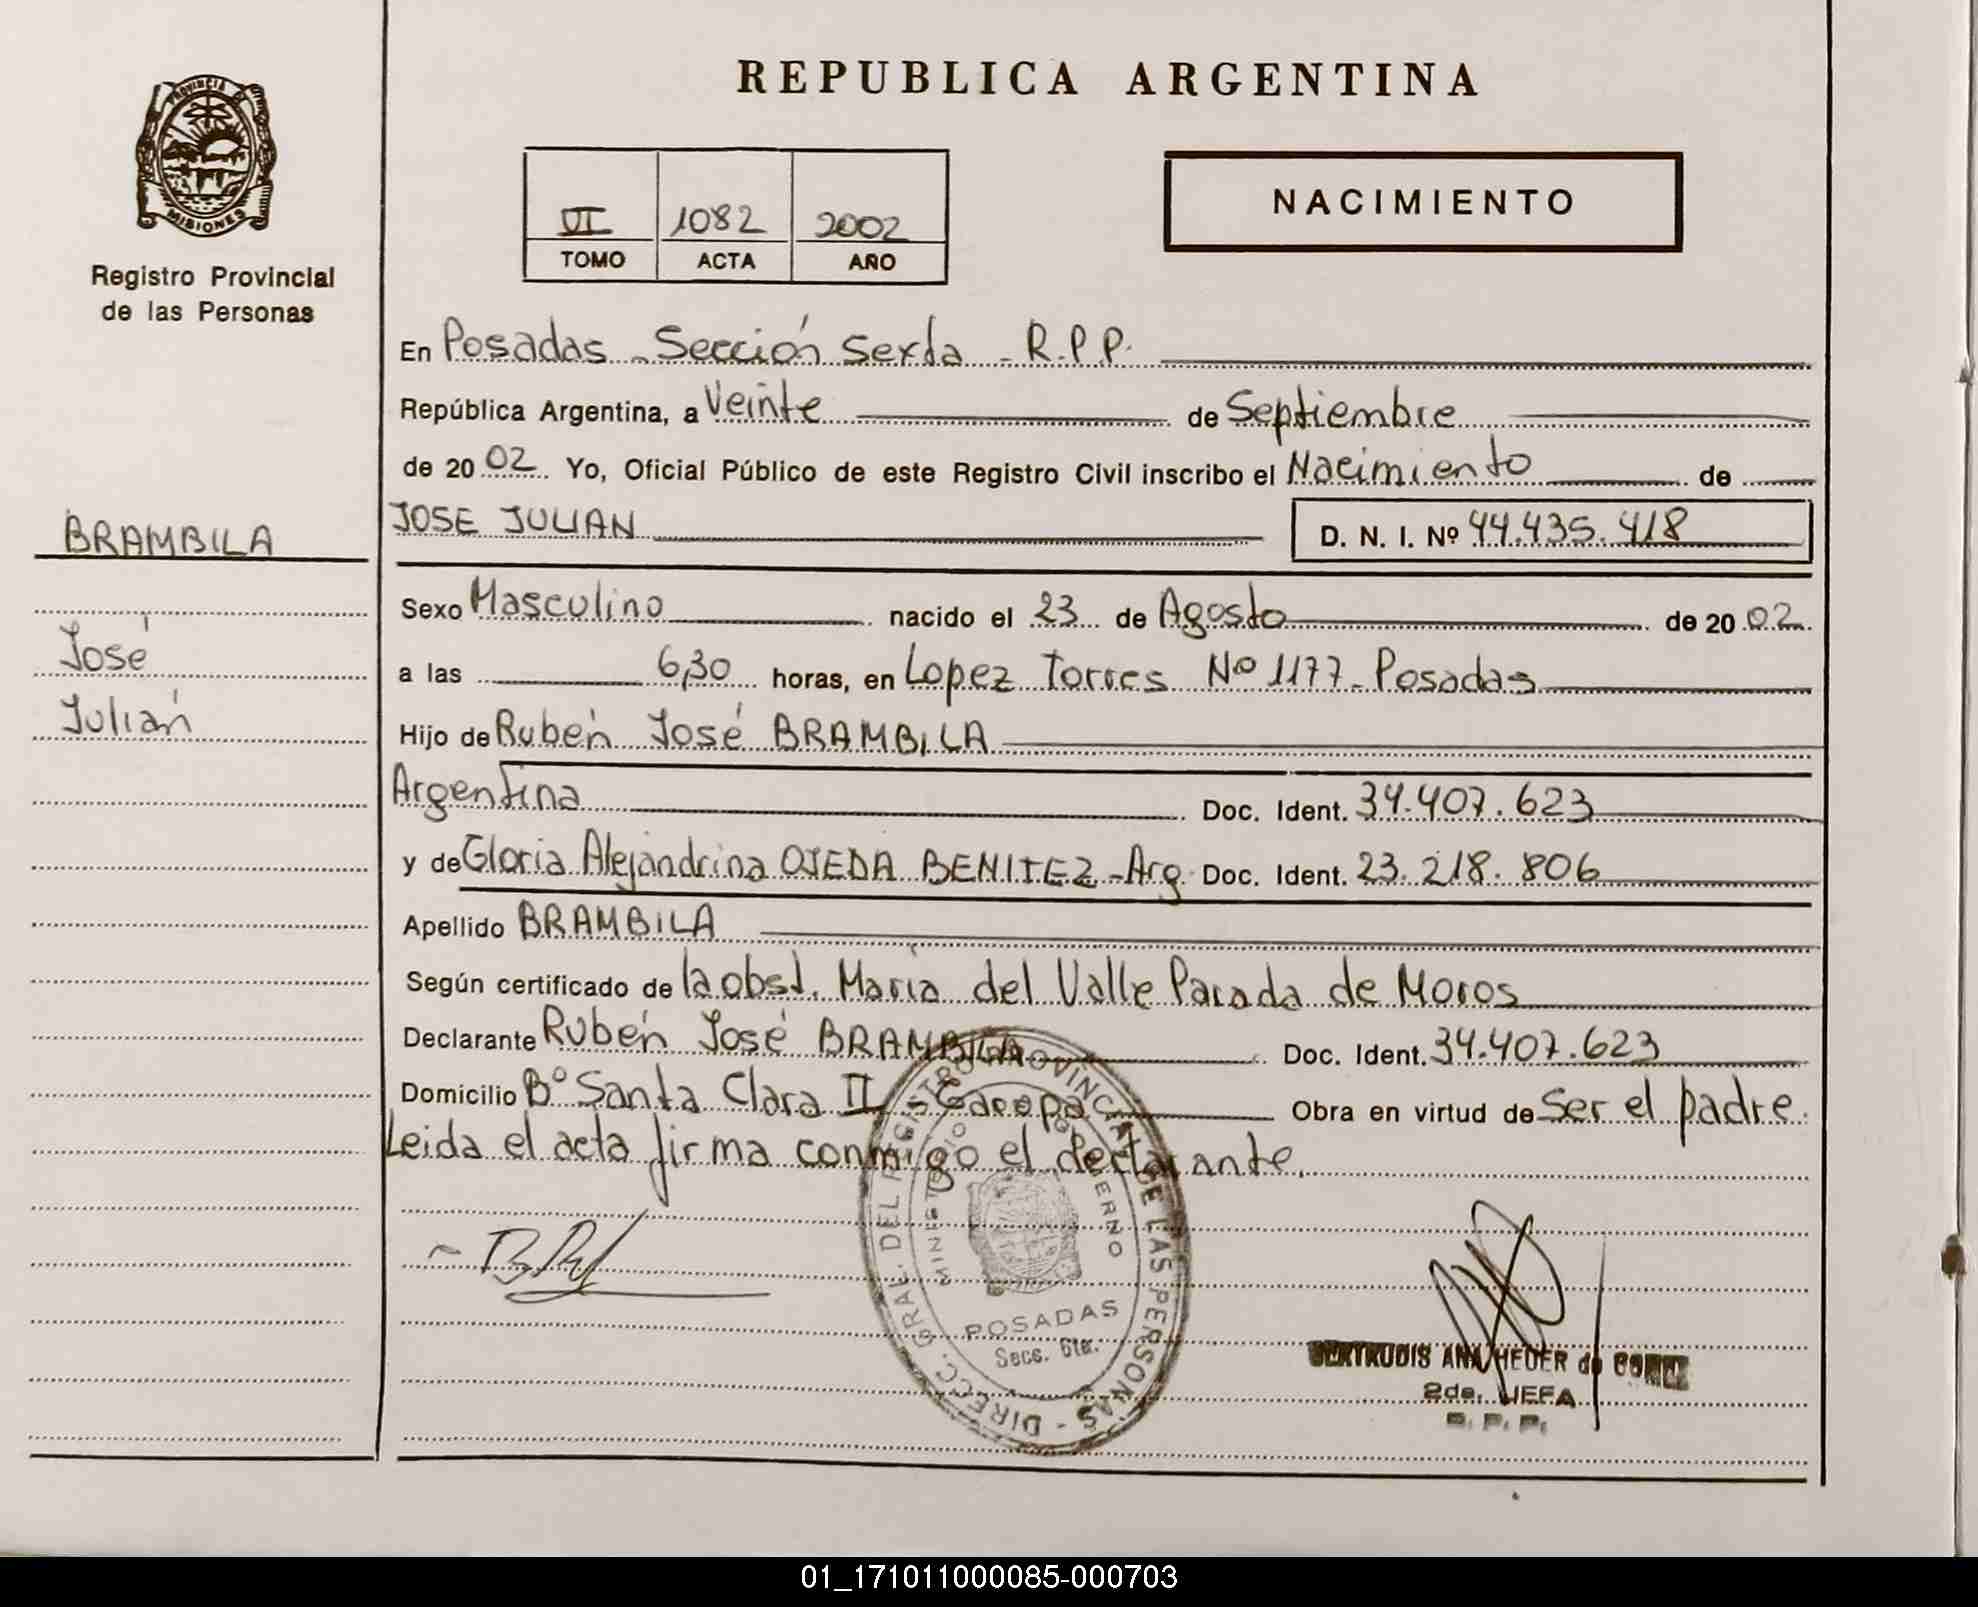 REPUBLICA ARGENTINA
PROVINCIA DE
MISIONES
Registro Provincial
de las Personas
VI 1082 2002
TOMO ACTA AÑO
NACIMIENTO
En Posadas - Sección Sexta - R.P.P.
República Argentina, a Veinte de Septiembre
de 20 02 Yo, Oficial Público de este Registro Civil inscribo el Nacimiento de
BRAMBILA
JOSE JULIAN D. N. I. Nº 44.435.418
José
Julián
Sexo Masculino nacido el 23 de Agosto de 20 02
a las 6,30 horas, en Lopez Torres Nº 1177 - Posadas
Hijo de Rubén José BRAMBILA
Argentina Doc. Ident. 34.407.623
y de Gloria Alejandrina OJEDA BENITEZ - Arg. Doc. Ident. 23.218.806
Apellido BRAMBILA
Según certificado de la obst. María del Valle Parada de Moros
Declarante Rubén José BRAMBILA Doc. Ident. 34.407.623
Domicilio Bº Santa Clara II - Garupá Obra en virtud de Ser el padre.
Leida el acta firma conmigo el declarante.
DIRECC. GRAL. DEL REGISTRO PROVINCIAL DE LAS PERSONAS -
MINISTERIO GOBIERNO
POSADAS
Secc. 6ta.
GERTRUDIS ANA HEDER de
2da. JEFA
R. P. P.
01_171011000085-000703